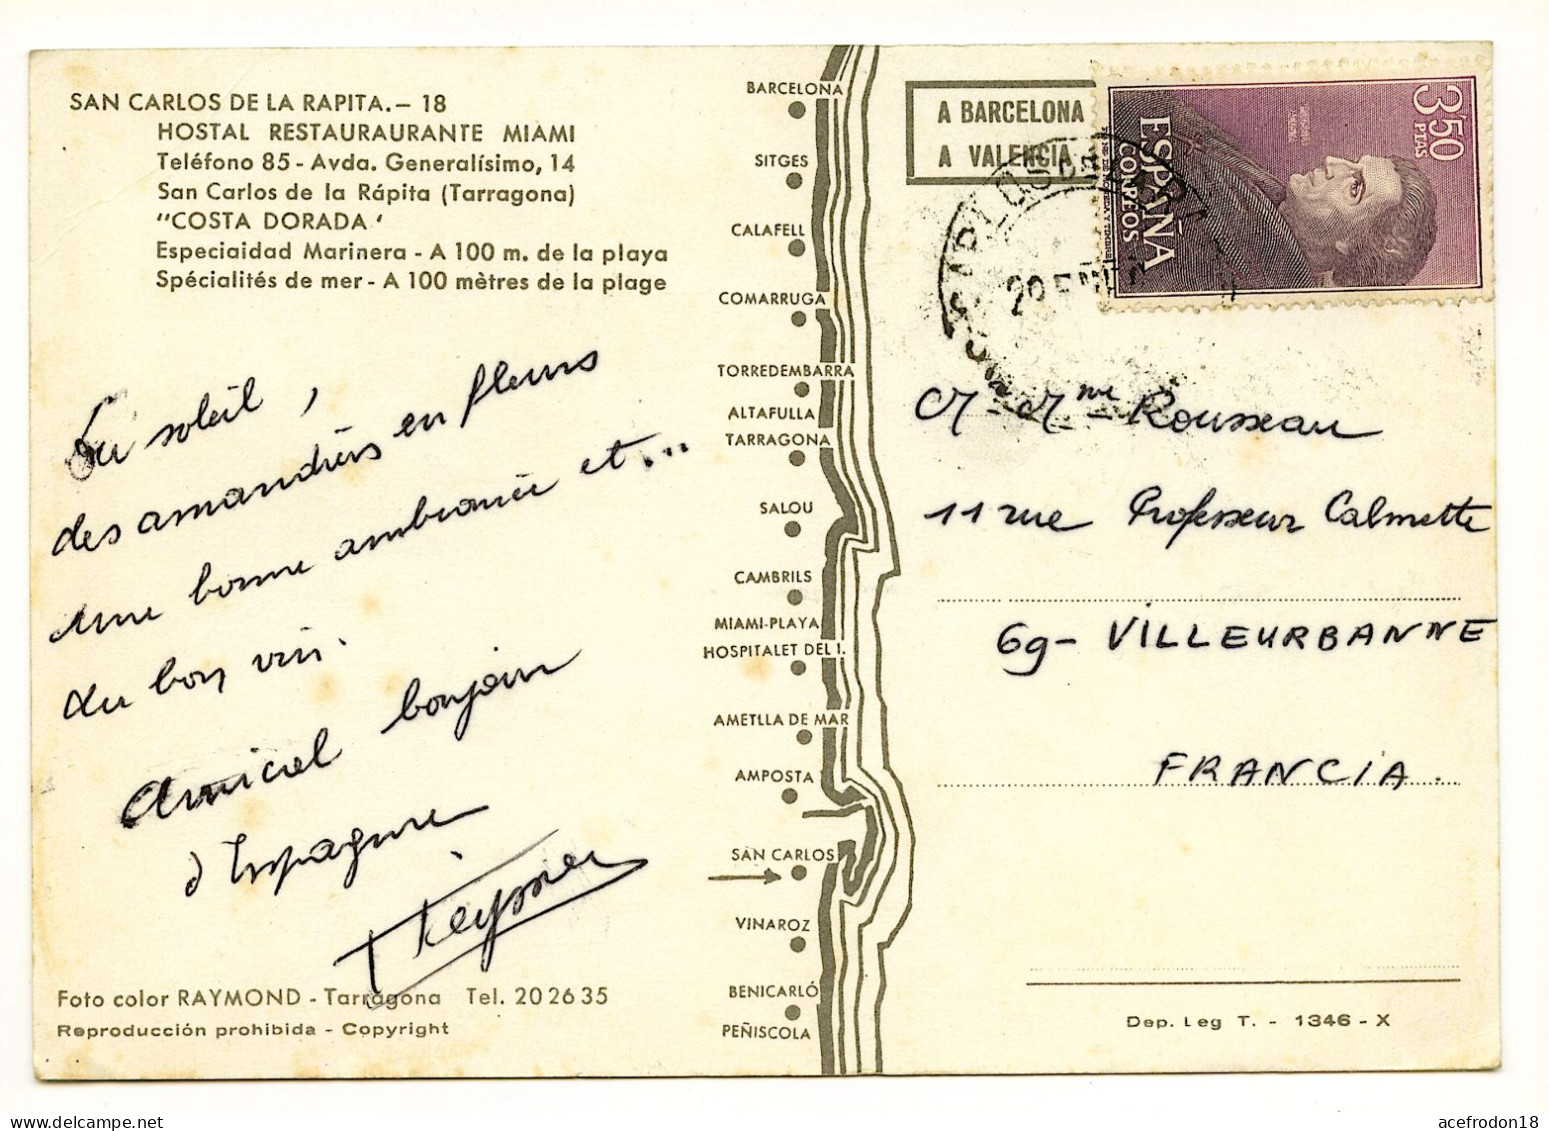 SAN CARLOS DE LA RAPITA.– 18
HOSTAL RESTAURAURANTE MIAMI
Teléfono 85 - Avda. Generalísimo, 14
San Carlos de la Rápita (Tarragona)
"COSTA DORADA '
Especiaidad Marinera - A 100 m. de la playa
Spécialités de mer - A 100 mètres de la plage
Du soleil,
des amandiers en fleurs
une bonne ambiance et...
du bon vin.
Amical bonjour
d'Espagne
Foto color RAYMOND - Tarragona Tel. 202635
Reproducción prohibida - Copyright
BARCELONA
SITGES
CALAFELL
COMARRUGA
TORREDEMBARRA
ALTAFULLA
TARRAGONA
SALOU
CAMBRILS
MIAMI-PLAYA
HOSPITALET DEL I.
AMETLLA DE MAR
AMPOSTA
SAN CARLOS
VINAROZ
BENICARLÓ
PEÑISCOLA
A BARCELONA
A VALENCIA
3'50
PTAS
ESPAÑA
CORREOS
M. Mme Rousseau
11 rue Professeur Calmette
69 - VILLEURBANNE
FRANCIA.
Dep. Leg T. - 1346 - X
acefrodon18